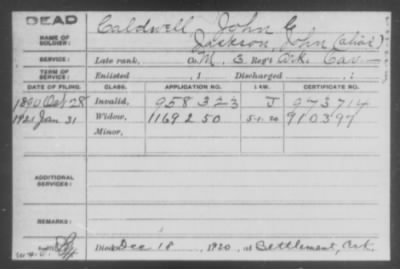 DEAD
NAME OF SOLDIER: Caldwell, John C.
Jackson, John (alias)
SERVICE: Late rank, Co. M, 3 Reg't Ark. Cav
TERM OF SERVICE: Enlisted , 1 Discharged , 1
DATE OF FILING. CLASS. APPLICATION NO. LAW. CERTIFICATE NO.
1890 Oct 28 Invalid, 958323 J 973714
1921 Jan 31 Widow, 1169250 5-1-20 910397
Minor,
ADDITIONAL SERVICES:
REMARKS:
Died Dec 18, 1920, at Settlement, Ark.